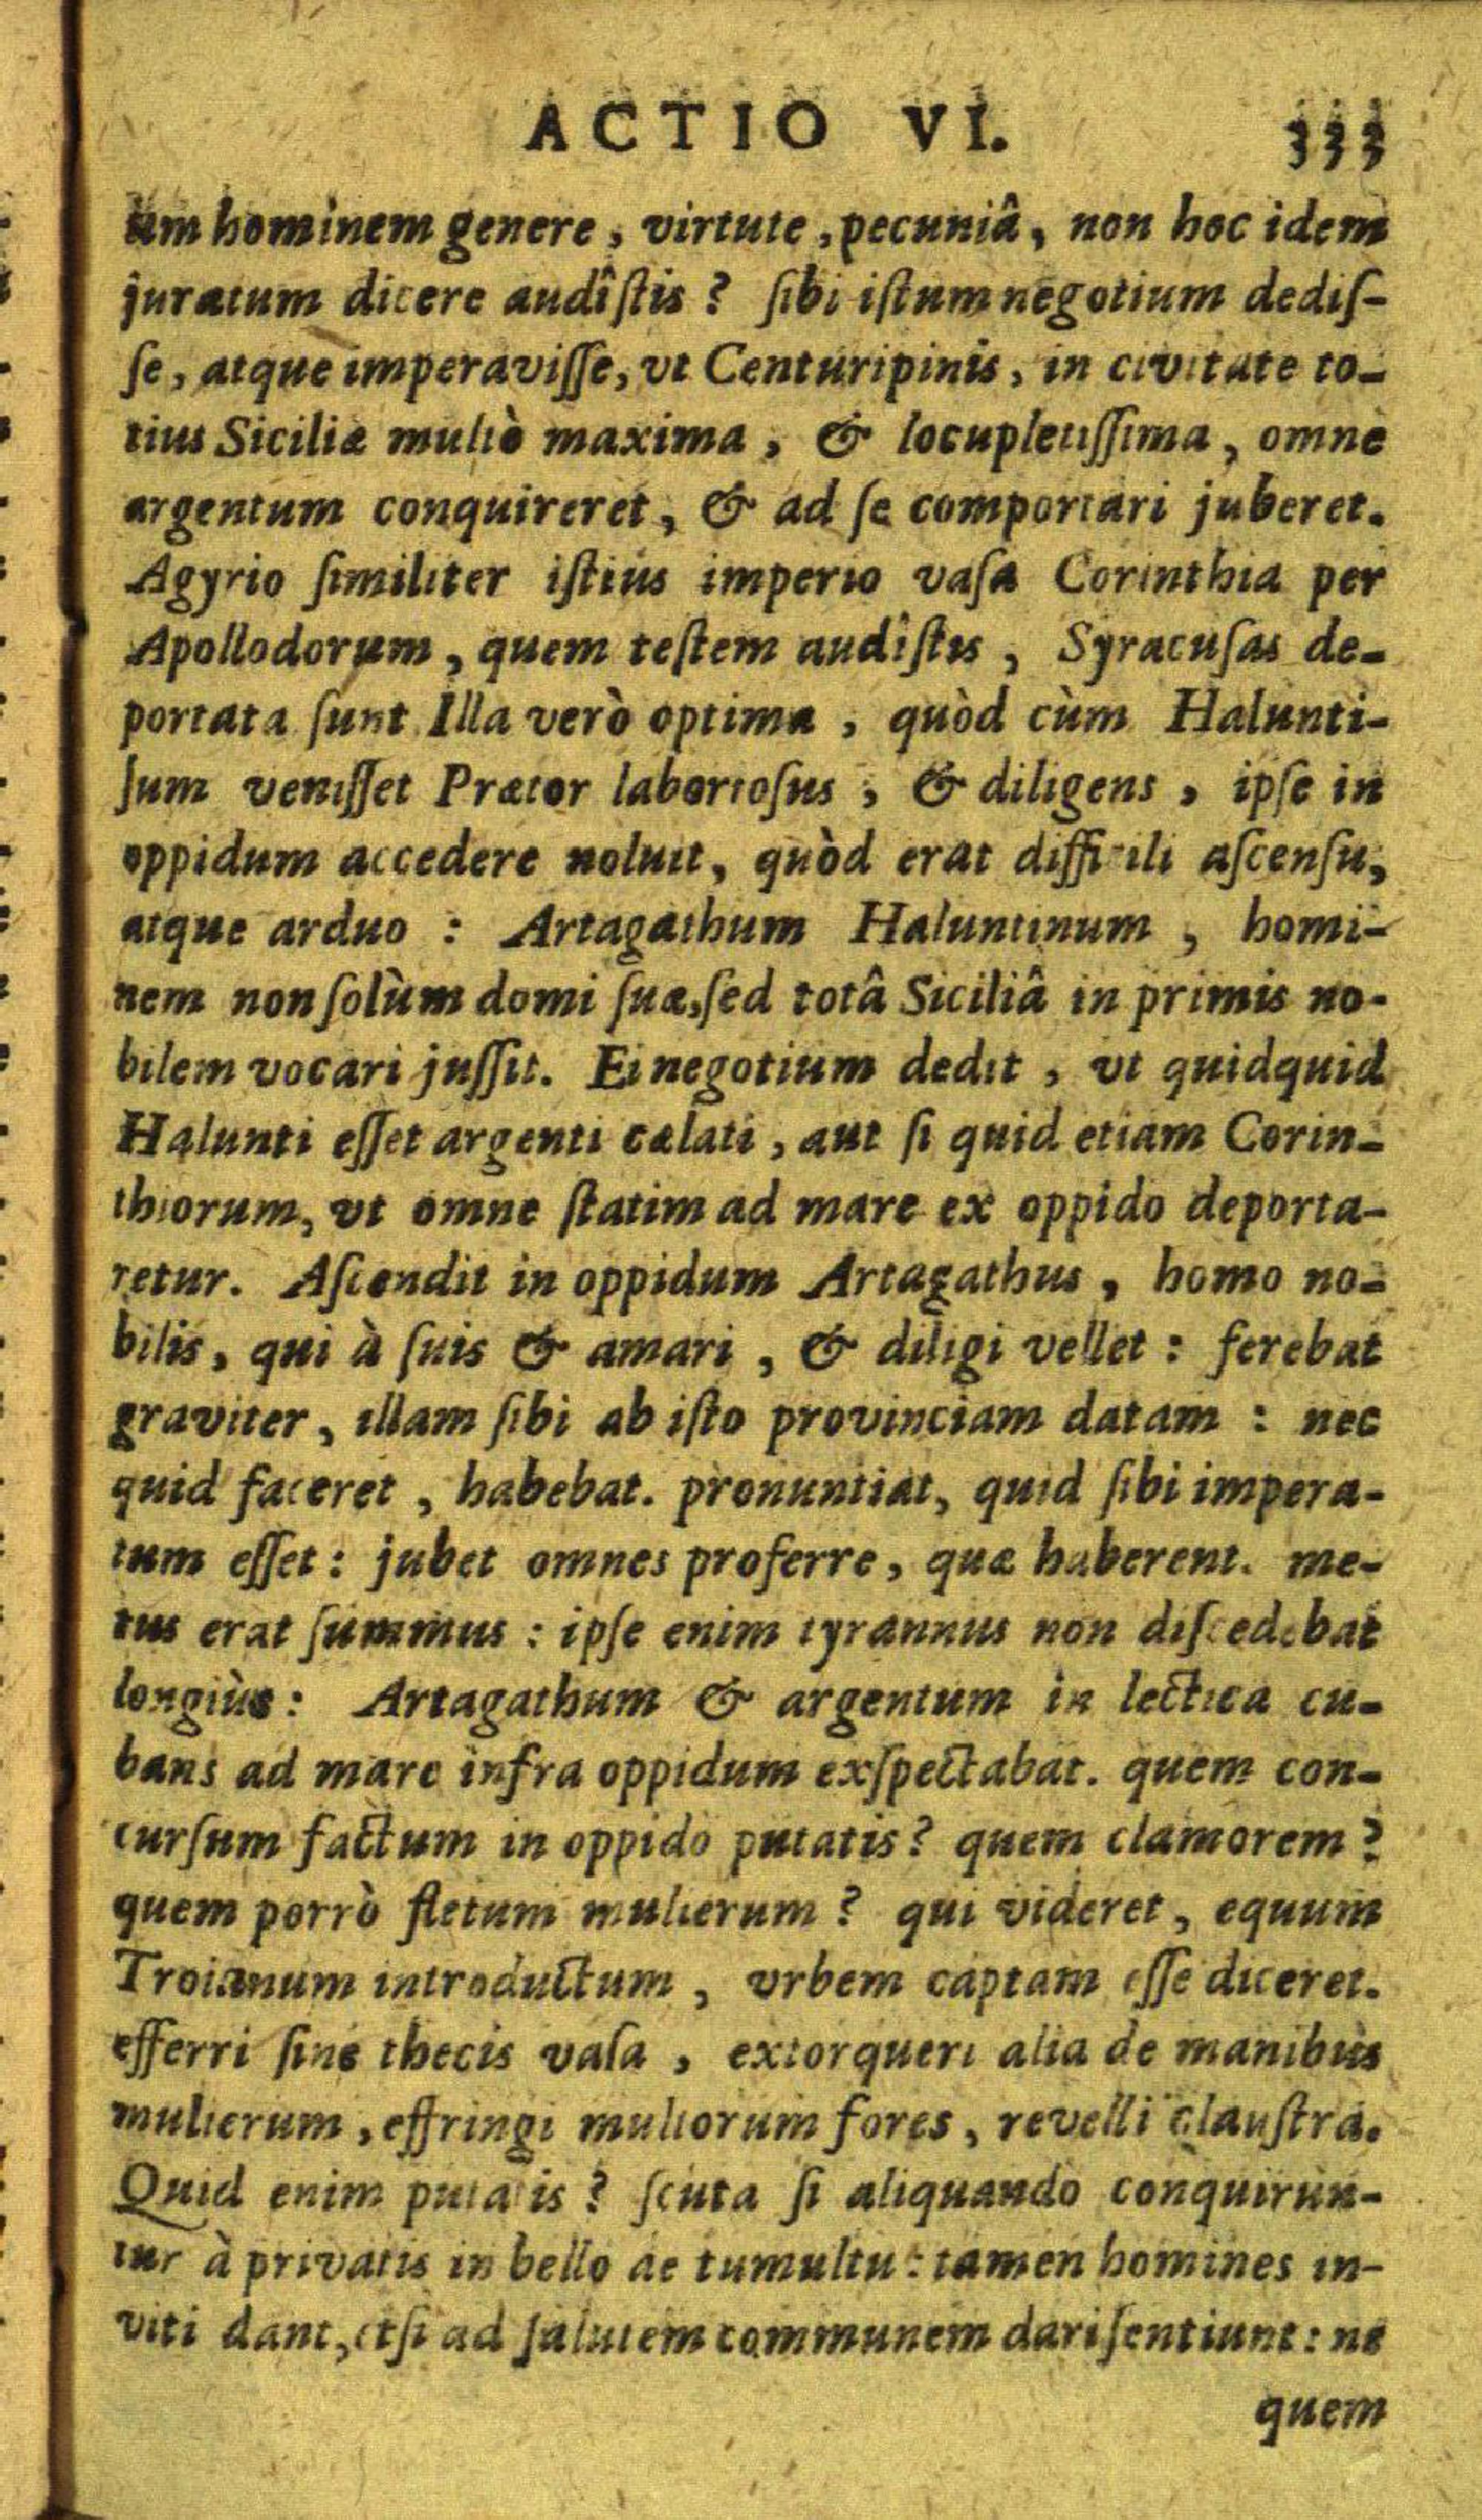 ACTIO VI. 333
um hominem genere, virtute, pecuniâ, non hoc idem
juratum dicere audîſtis? ſibi iſtum negotium dediſ-
ſe, atque imperaviſſe, vt Centuripinis, in civitate to-
tius Siciliæ multò maxima, & locupletiſſima, omne
argentum conquireret, & ad ſe comportari juberet.
Agyrio ſimiliter iſtius imperio vaſa Corinthia per
Apollodorum, quem teſtem audîſtis, Syracuſas de-
portata ſunt Illa verò optima, quòd cùm Halunti-
ſum veniſſet Prætor laborioſus, & diligens, ipſe in
oppidum accedere noluit, quòd erat difficili aſcenſu,
atque arduo: Artagathum Haluntinum, homi-
nem non ſolùm domi ſuæ, ſed totâ Siciliâ in primis no-
bilem vocari juſſit. Ei negotium dedit, vt quidquid
Halunti eſſet argenti cælati, aut ſi quid etiam Corin-
thiorum, vt omne ſtatim ad mare ex oppido deporta-
retur. Aſcendit in oppidum Artagathus, homo no-
bilis, qui à ſuis & amari, & diligi vellet: ferebat
graviter, illam ſibi ab iſto provinciam datam: nec
quid faceret, habebat. pronuntiat, quid ſibi impera-
tum eſſet: jubet omnes proferre, quæ haberent. me-
tus erat ſummus: ipſe enim tyrannus non diſcedebat
longiùs: Artagathum & argentum in lectica cu-
bans ad mare infra oppidum exſpectabat. quem con-
curſum factum in oppido putatis? quem clamorem?
quem porrò fletum mulierum? qui videret, equum
Troianum introductum, vrbem captam eſſe diceret.
efferri ſine thecis vaſa, extorqueri alia de manibus
mulierum, effringi multorum fores, revelli clauſtra.
Quid enim putatis? ſcuta ſi aliquando conquirun-
tur à privatis in bello ac tumultu: tamen homines in-
viti dant, etſi ad ſalutem communem dari ſentiunt: ne
quem